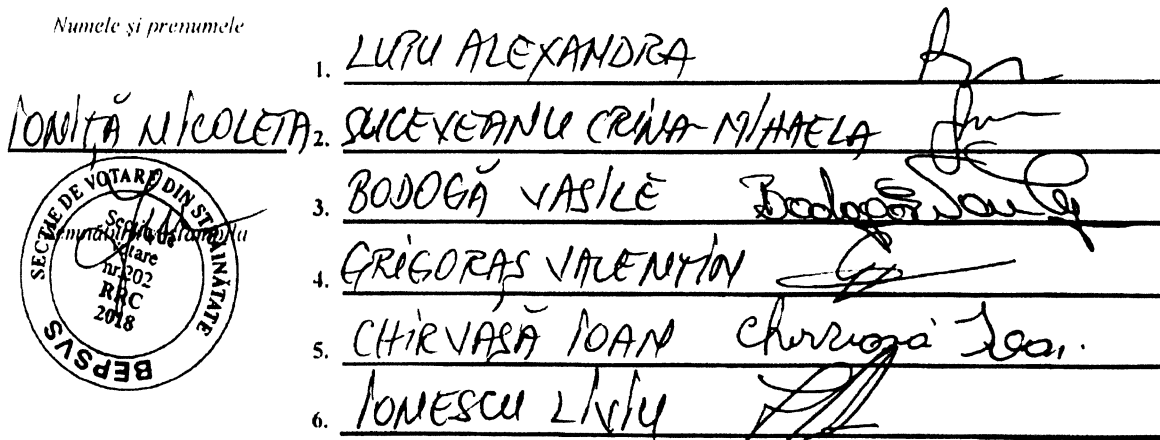 Numele și prenumele
1. LUPU ALEXANDRA
IONIȚĂ NICOLETA
2. SUCEVEANU CRINA-MIHAELA
3. BODOGĂ VASILE Bodogă Vasile
4. GRIGORAȘ VALENTIN
5. CHIRVASĂ IOAN Chirvasă Ioan.
6. IONESCU LIVIU
SECȚIE DE VOTARE DIN STRĂINĂTATE
Secția de
votare
nr.202
RRC
2018
BEPSVS